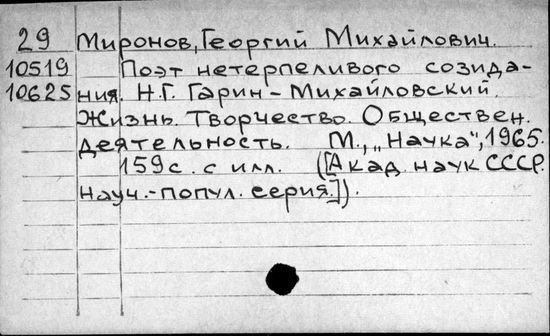 29 Миронов, Георгий Михайлович.
10519 Поэт нетерпеливого созида-
10625 ния. Н.Г. Гарин-Михайловский.
Жизнь. Творчество. Обществен.
деятельность. М., „Наука", 1965.
159 с. с илл. ([Акад. наук СССР.
Науч.-попул. серия.]).